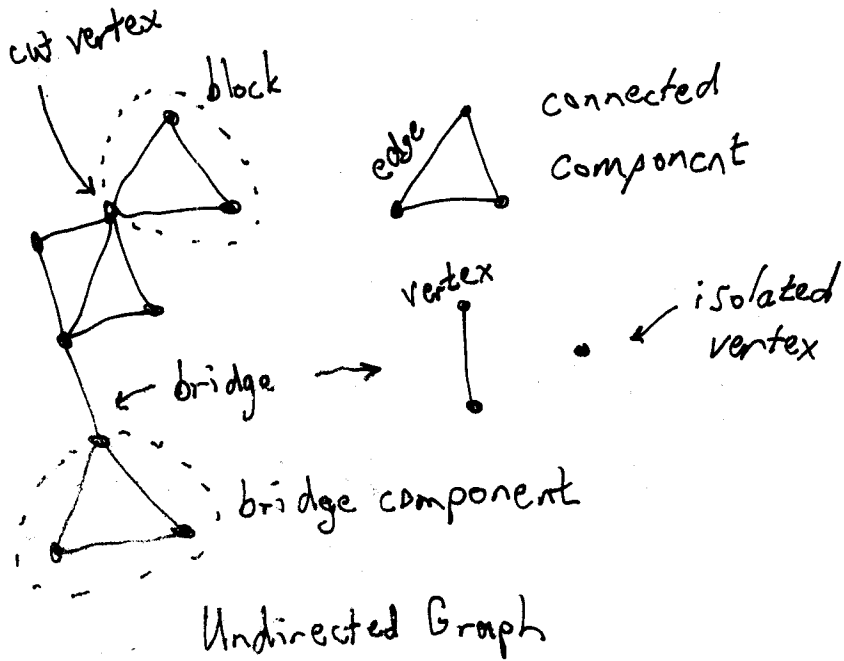 cut vertex
block
edge
connected
component
vertex
isolated
vertex
bridge
bridge component
Undirected Graph